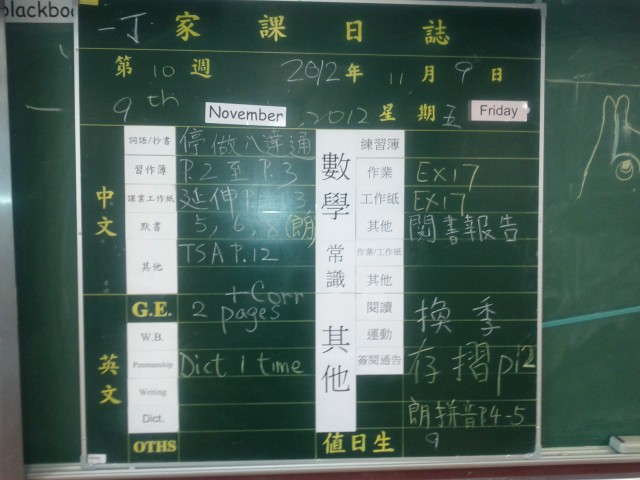 blackboa
一丁 家課日誌
第 10 週 2012 年 11 月 9 日
9th November, 2012 星期五 Friday
中文
詞語/抄書 停做八達通
習作簿 P.2 至 P.3
課業工作紙 延伸
默書 5, 6, 8(朗)
其他 TSA P.12
數學
練習簿
作業 EX17
工作紙 EX17
其他 閱書報告
常識
作業/工作紙
其他
英文
G.E. 2 pages + Corr
W.B.
Penmanship Dict 1 time
Writing
Dict.
OTHS
其他
閱讀 換季
運動
簽閱通告 存摺 p12
朗拼音P.4-5
值日生 9